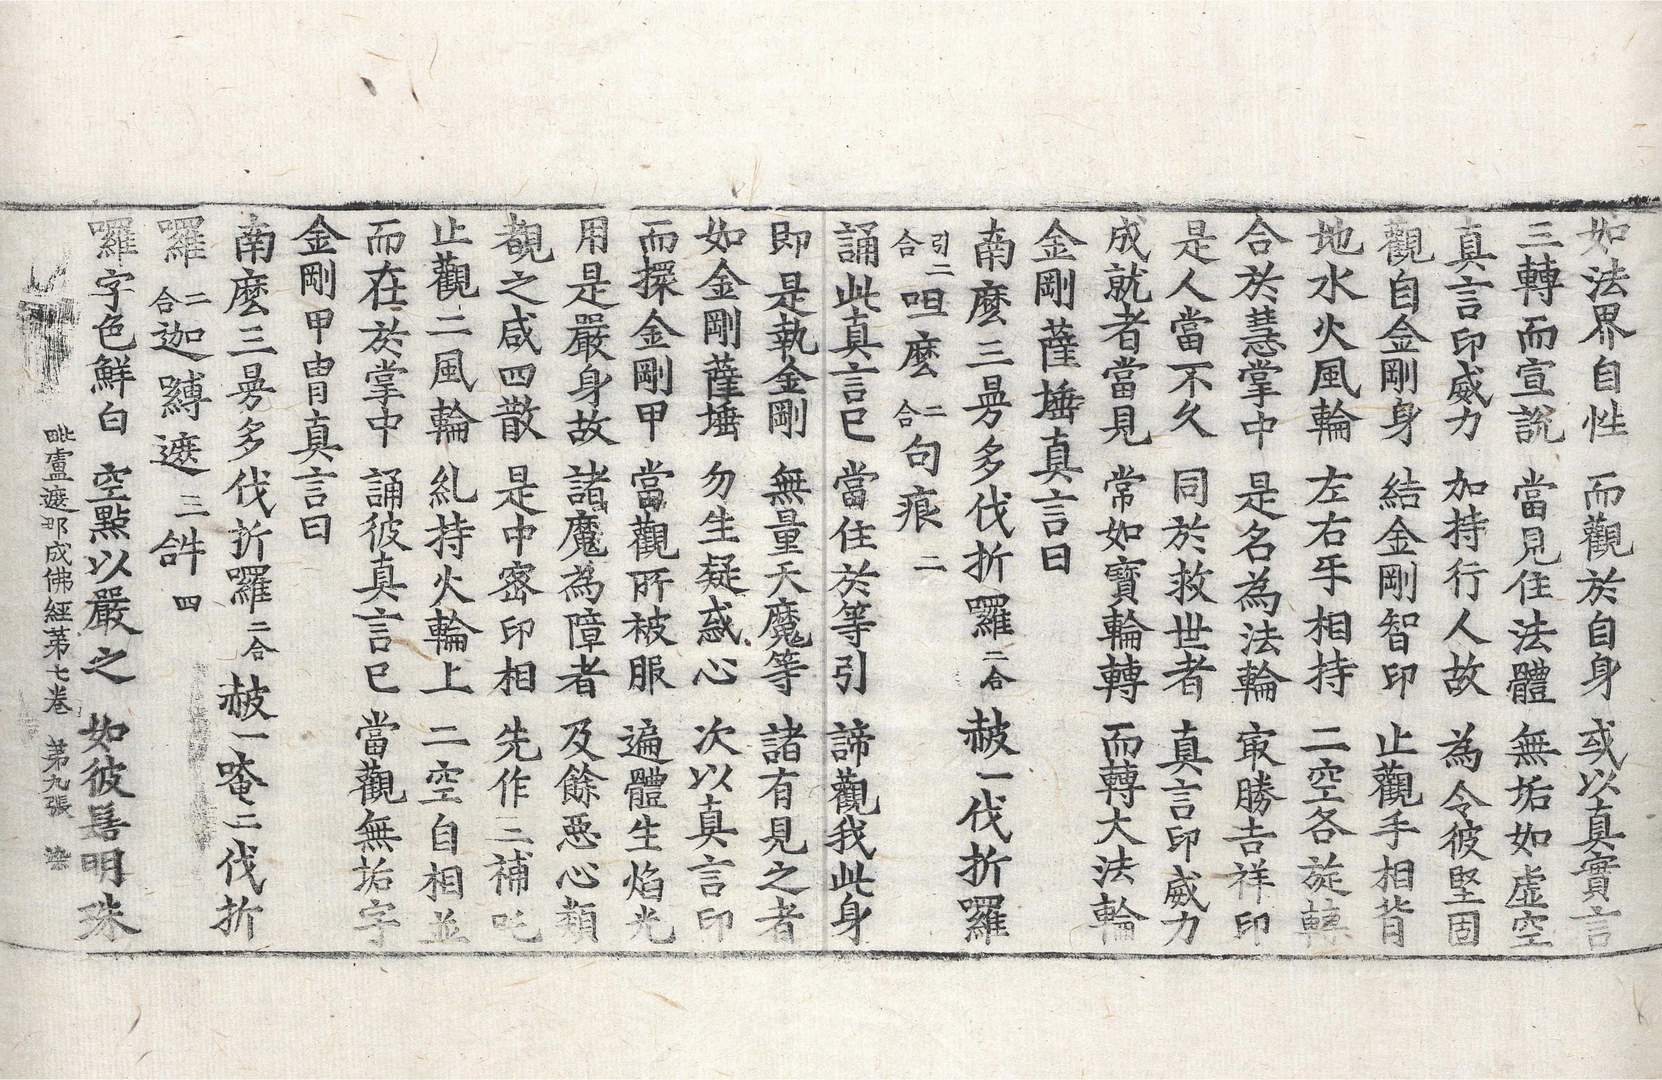 如法界自性　而觀於自身　或以真實言
三轉而宣說　當見住法體　無垢如虛空
真言印威力　加持行人故　為令彼堅固
觀自金剛身　結金剛智印　止觀手相背
地水火風輪　左右手相持　二空各旋轉
合於慧掌中　是名為法輪　㝡勝吉祥印
是人當不久　同於救世者　真言印威力
成就者當見　常如寶輪轉　而轉大法輪
金剛薩埵真言曰
南麽三曼多伐折囉二合赧一伐折囉
引二合呾麽二合句痕二
誦此真言已　當住於等引　諦觀我此身
即是執金剛　無量天魔等　諸有見之者
如金剛薩埵　勿生疑惑心　次以真言印
而擐金剛甲　當觀所被服　遍體生焰光
用是嚴身故　諸魔為障者　及餘惡心類
覩之咸四散　是中密印相　先作三補吒
止觀二風輪　糺持火輪上　二空自相並
而在於掌中　誦彼真言已　當觀無垢字
金剛甲冑真言曰
南麽三曼多伐折囉二合赧一唵二伐折
囉二合迦嚩遮三𤙖四
囉字色鮮白　空點以嚴之　如彼髻明珠
毗盧遮那成佛經第七卷　第九張　染